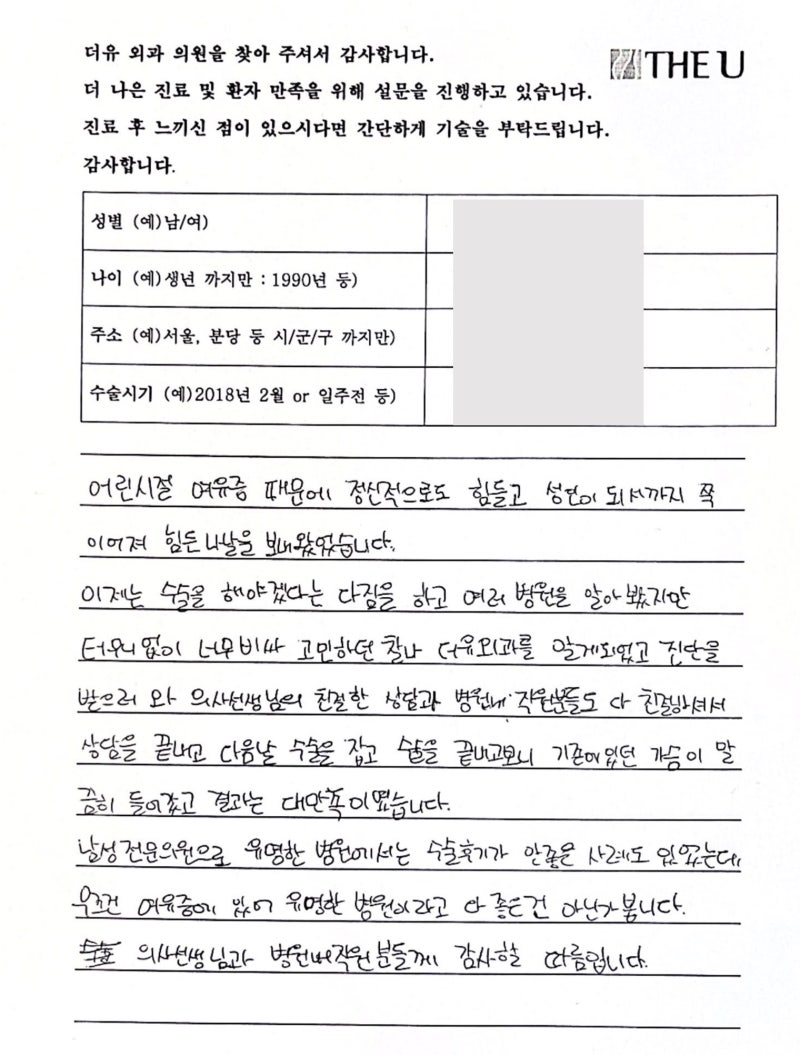 더유 외과 의원을 찾아 주셔서 감사합니다.
THE U
더 나은 진료 및 환자 만족을 위해 설문을 진행하고 있습니다.
진료 후 느끼신 점이 있으시다면 간단하게 기술을 부탁드립니다.
감사합니다.
성별 (예)남/여)
나이 (예)생년 까지만 : 1990년 등)
주소 (예)서울, 분당 등 시/군/구 까지만)
수술시기 (예)2018년 2월 or 일주전 등)
어린시절 여유증 때문에 정신적으로도 힘들고 성인이 되서까지 쭉
이어져 힘든나날을 보내왔었습니다.
이제는 수술을 해야겠다는 다짐을 하고 여러 병원을 알아봤지만
터무니없이 너무비싸 고민하던 찰나 더유외과를 알게되었고 진단을
받으러 와 의사선생님의 친절한 상담과 병원내 직원분들도 다 친절하셔서
상담을 끝내고 다음날 수술을 잡고 수술을 끝내고보니 기존에있던 가슴이 말
끔히 들어갔고 결과는 대만족이였습니다.
남성전문의원으로 유명한 병원에서는 수술후기가 안좋은 사례도 있었는데
무조건 여유증에 있어 유명한 병원이라고 다 좋은건 아닌가봅니다.
의사선생님과 병원내직원분들께 감사할 따름입니다.